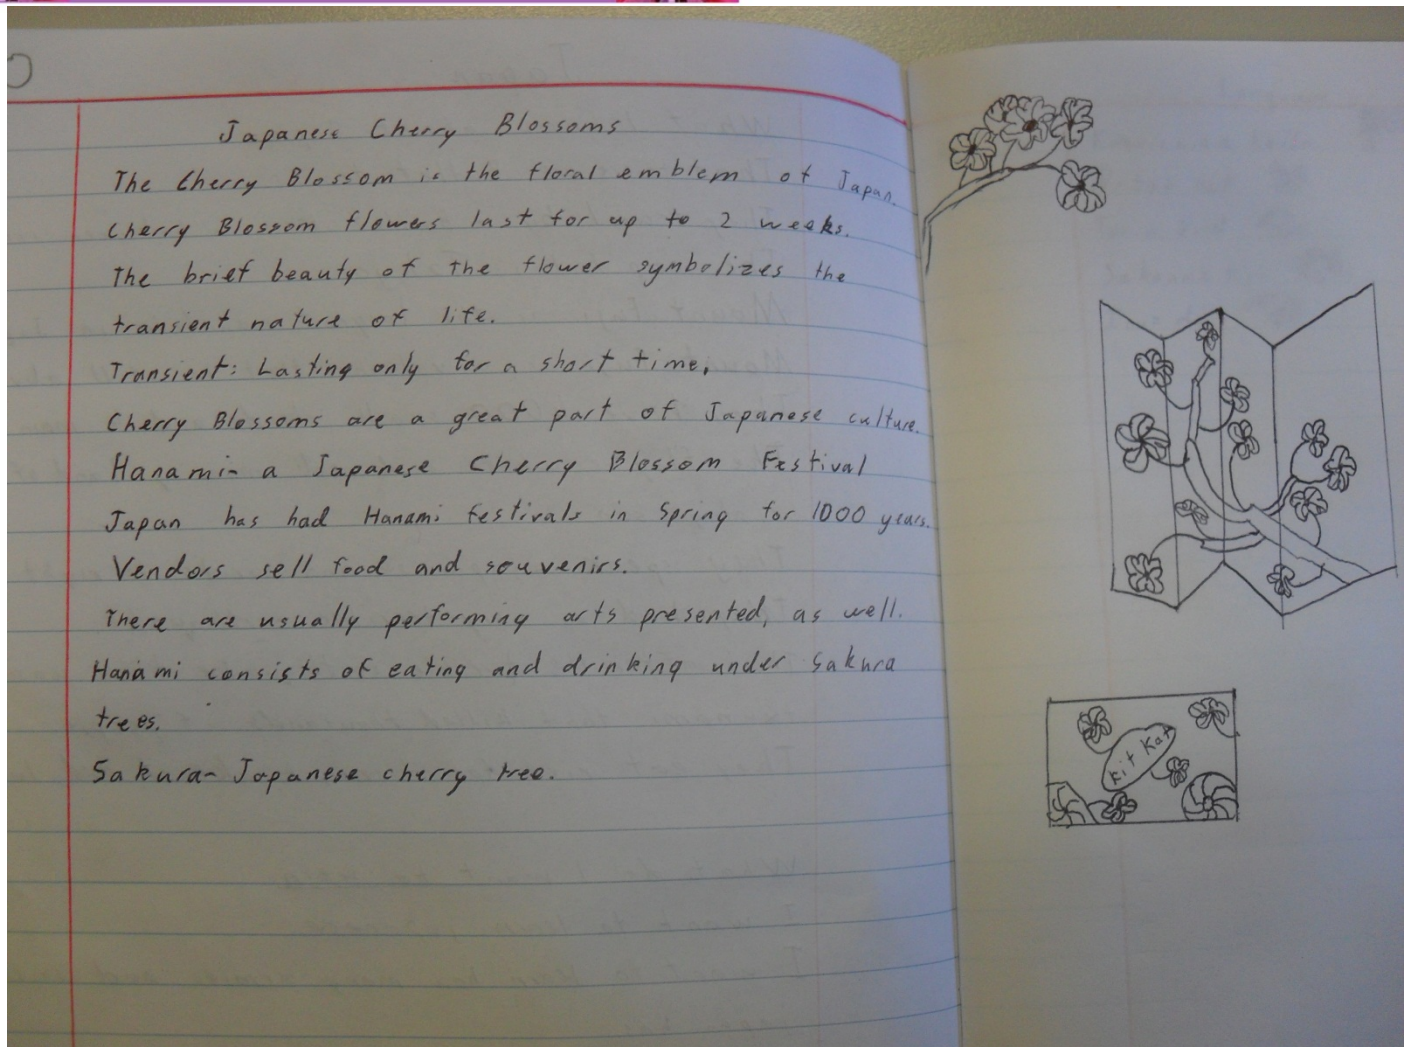 Japanese Cherry Blossoms
The Cherry Blossom is the floral emblem of Japan.
Cherry Blossom flowers last for up to 2 weeks.
The brief beauty of the flower symbolizes the
transient nature of life.
Transient: Lasting only for a short time.
Cherry Blossoms are a great part of Japanese culture.
Hanami- a Japanese Cherry Blossom Festival
Japan has had Hanami festivals in Spring for 1000 years.
Vendors sell food and souvenirs.
There are usually performing arts presented, as well.
Hanami consists of eating and drinking under Sakura
trees.
Sakura- Japanese cherry tree.
Kit Kat